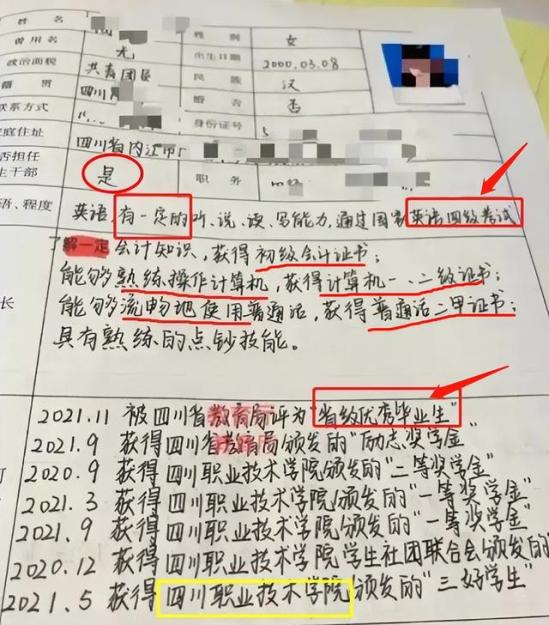 姓名
性别 女
曾用名 无 出生日期 2000.03.08
政治面貌 共青团员 民族 汉
籍贯 四川 婚否 否
联系方式 身份证号
家庭住址 四川省内江市
否担任
生干部 是 职务
语、程度 英语,有一定的听、说、读、写能力,通过国家英语四级考试
了解一定会计知识,获得初级会计证书;
能够熟练操作计算机,获得计算机一、二级证书;
长 能够流畅地使用普通话,获得普通话二甲证书;
具有熟练的点钞技能。
2021.11 被四川省教育局评为"省级优秀毕业生"
2021.9 获得四川省教育局颁发的"励志奖学金"
2020.9 获得四川职业技术学院颁发的"二等奖学金"
2021.3 获得四川职业技术学院颁发的"一等奖学金"
2021.9 获得四川职业技术学院颁发的"一等奖学金"
2020.12 获得四川职业技术学院学生社团联合会颁发的"
2021.5 获得四川职业技术学院颁发的"三好学生"